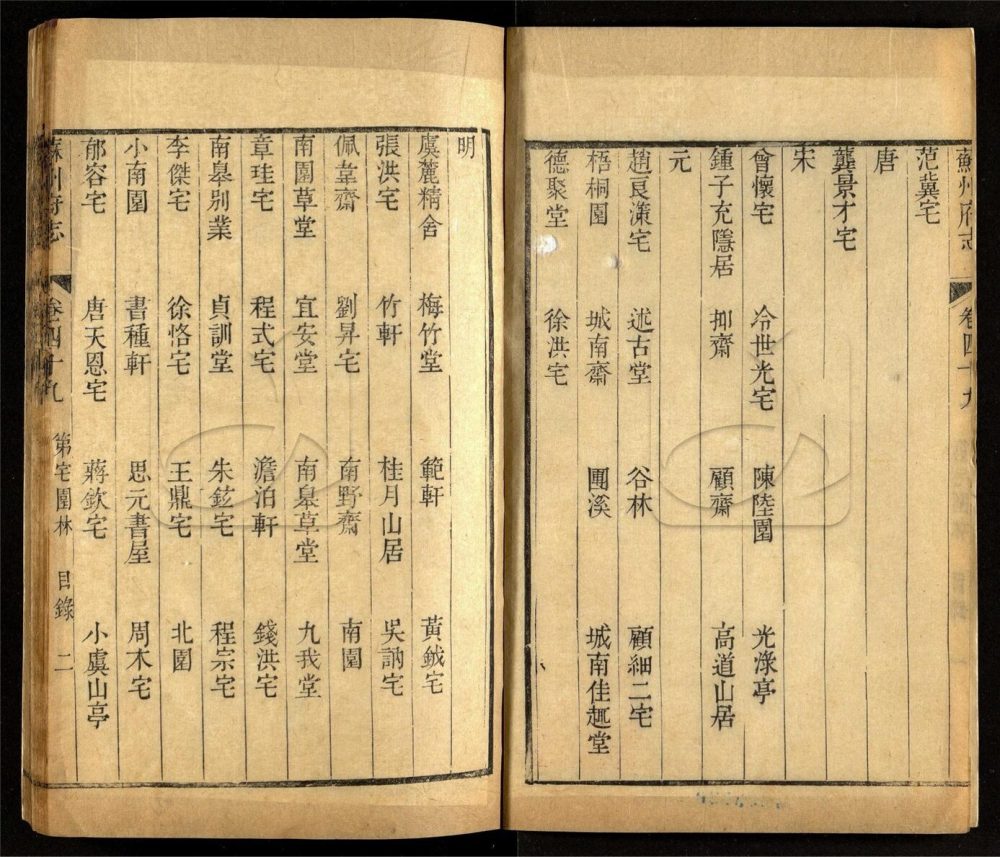 蘇州府志 卷四十九
范冀宅
唐
龔景才宅
宋
曾懷宅 冷世光宅 陳陸園 光淥亭
鍾子充隱居 抑齋 顧齋 高道山居
元
趙良濂宅 述古堂 谷林 顧細二宅
梧桐園 城南齋 團溪 城南佳趣堂
德聚堂 徐洪宅
明
虞麓精舍 梅竹堂 範軒 黃鉞宅
張洪宅 竹軒 桂月山居 吳訥宅
佩韋齋 劉昇宅 南野齋 南園
南園草堂 宜安堂 南皋草堂 九我堂
章珪宅 程式宅 澹泊軒 錢洪宅
南皋别業 貞訓堂 朱鉉宅 程宗宅
李傑宅 徐恪宅 王鼎宅 北園
小南園 書種軒 思元書屋 周木宅
郁容宅 唐天恩宅 蔣欽宅 小虞山亭
蘇州府志 卷四十九 第宅園林 目錄 二